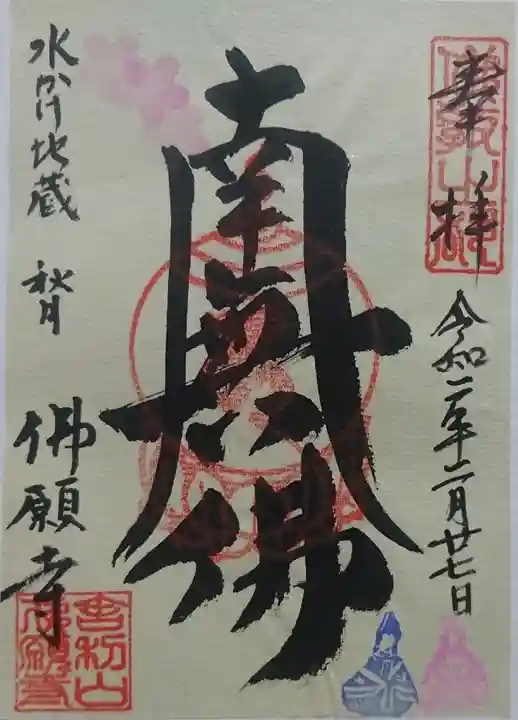 奉拝
令和二年二月廿七日
南無佛
水かけ地蔵 秋月
佛願寺
舎利山
佛願寺